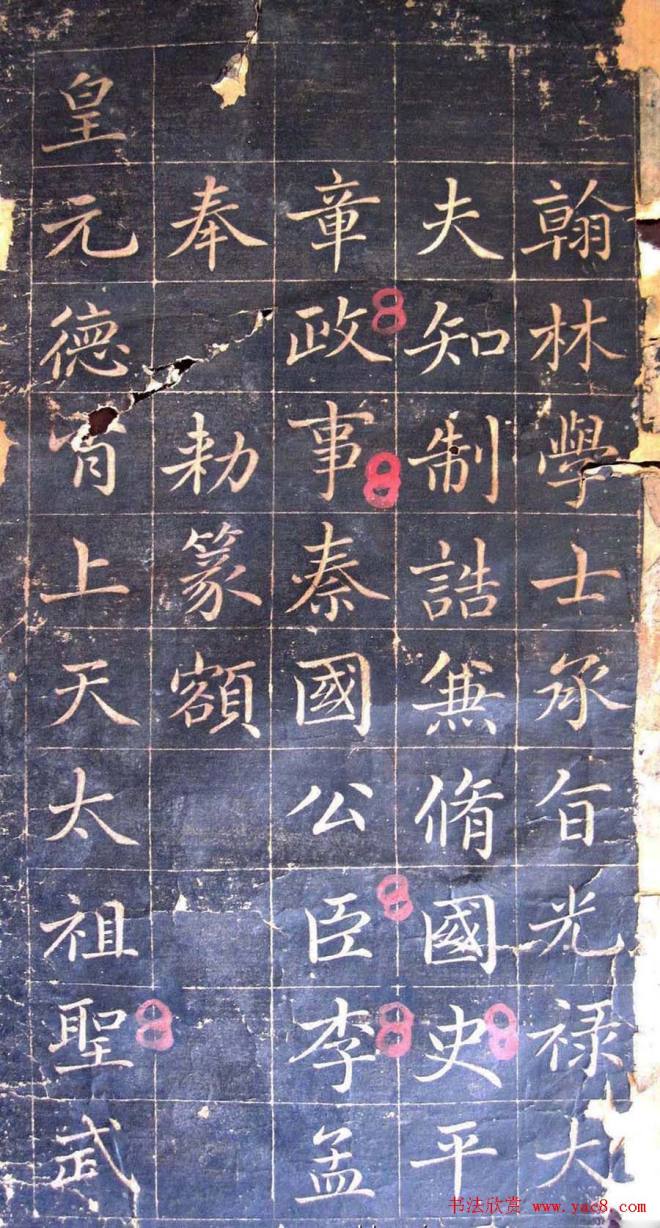 翰林學士承旨光禄大
夫知制誥兼脩國史平
章政事秦國公臣李孟
奉勑篆額
皇元德肎上天太祖聖武
书法欣赏 www.yac8.com